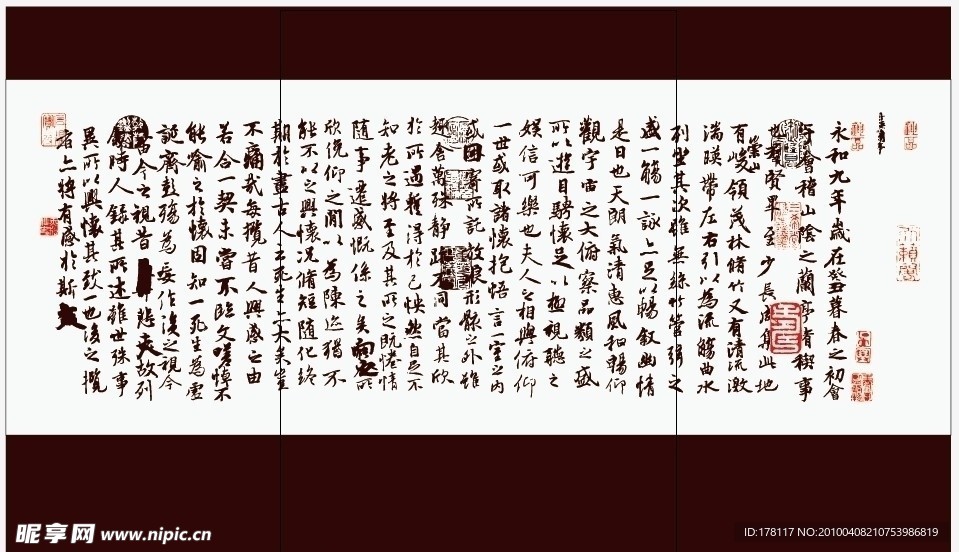 永和九年歲在癸丑暮春之初會
會稽山陰之蘭亭脩稧事
也羣賢畢至少長咸集此地
有崇山峻領茂林脩竹又有清流激
湍暎帶左右引以為流觴曲水
列坐其次雖無絲竹管弦之
盛一觴一詠亦足以暢叙幽情
是日也天朗氣清惠風和暢仰
觀宇宙之大俯察品類之盛
所以遊目騁懷足以極視聽之
娛信可樂也夫人之相與俯仰
一世或取諸懷抱悟言一室之內
或因寄所託放浪形骸之外雖
趣舍萬殊静躁不同當其欣
於所遇蹔得於己怏然自足不
知老之將至及其所之既惓情
随事遷感慨係之矣向之所
欣俛仰之閒以為陳迹猶不
能不以之興懷況脩短随化終
期於盡古人云死生亦大矣豈
不痛哉每攬昔人興感之由
若合一契未嘗不臨文嗟悼不
能喻之於懷固知一死生為虛
誕齊彭殤為妄作後之視今
由今之視昔悲夫故列
叙時人錄其所述雖世殊事
異所以興懷其致一也後之攬
者亦將有感於斯文
昵享网 www.nipic.cn
ID:178117 NO:20100408210753986819